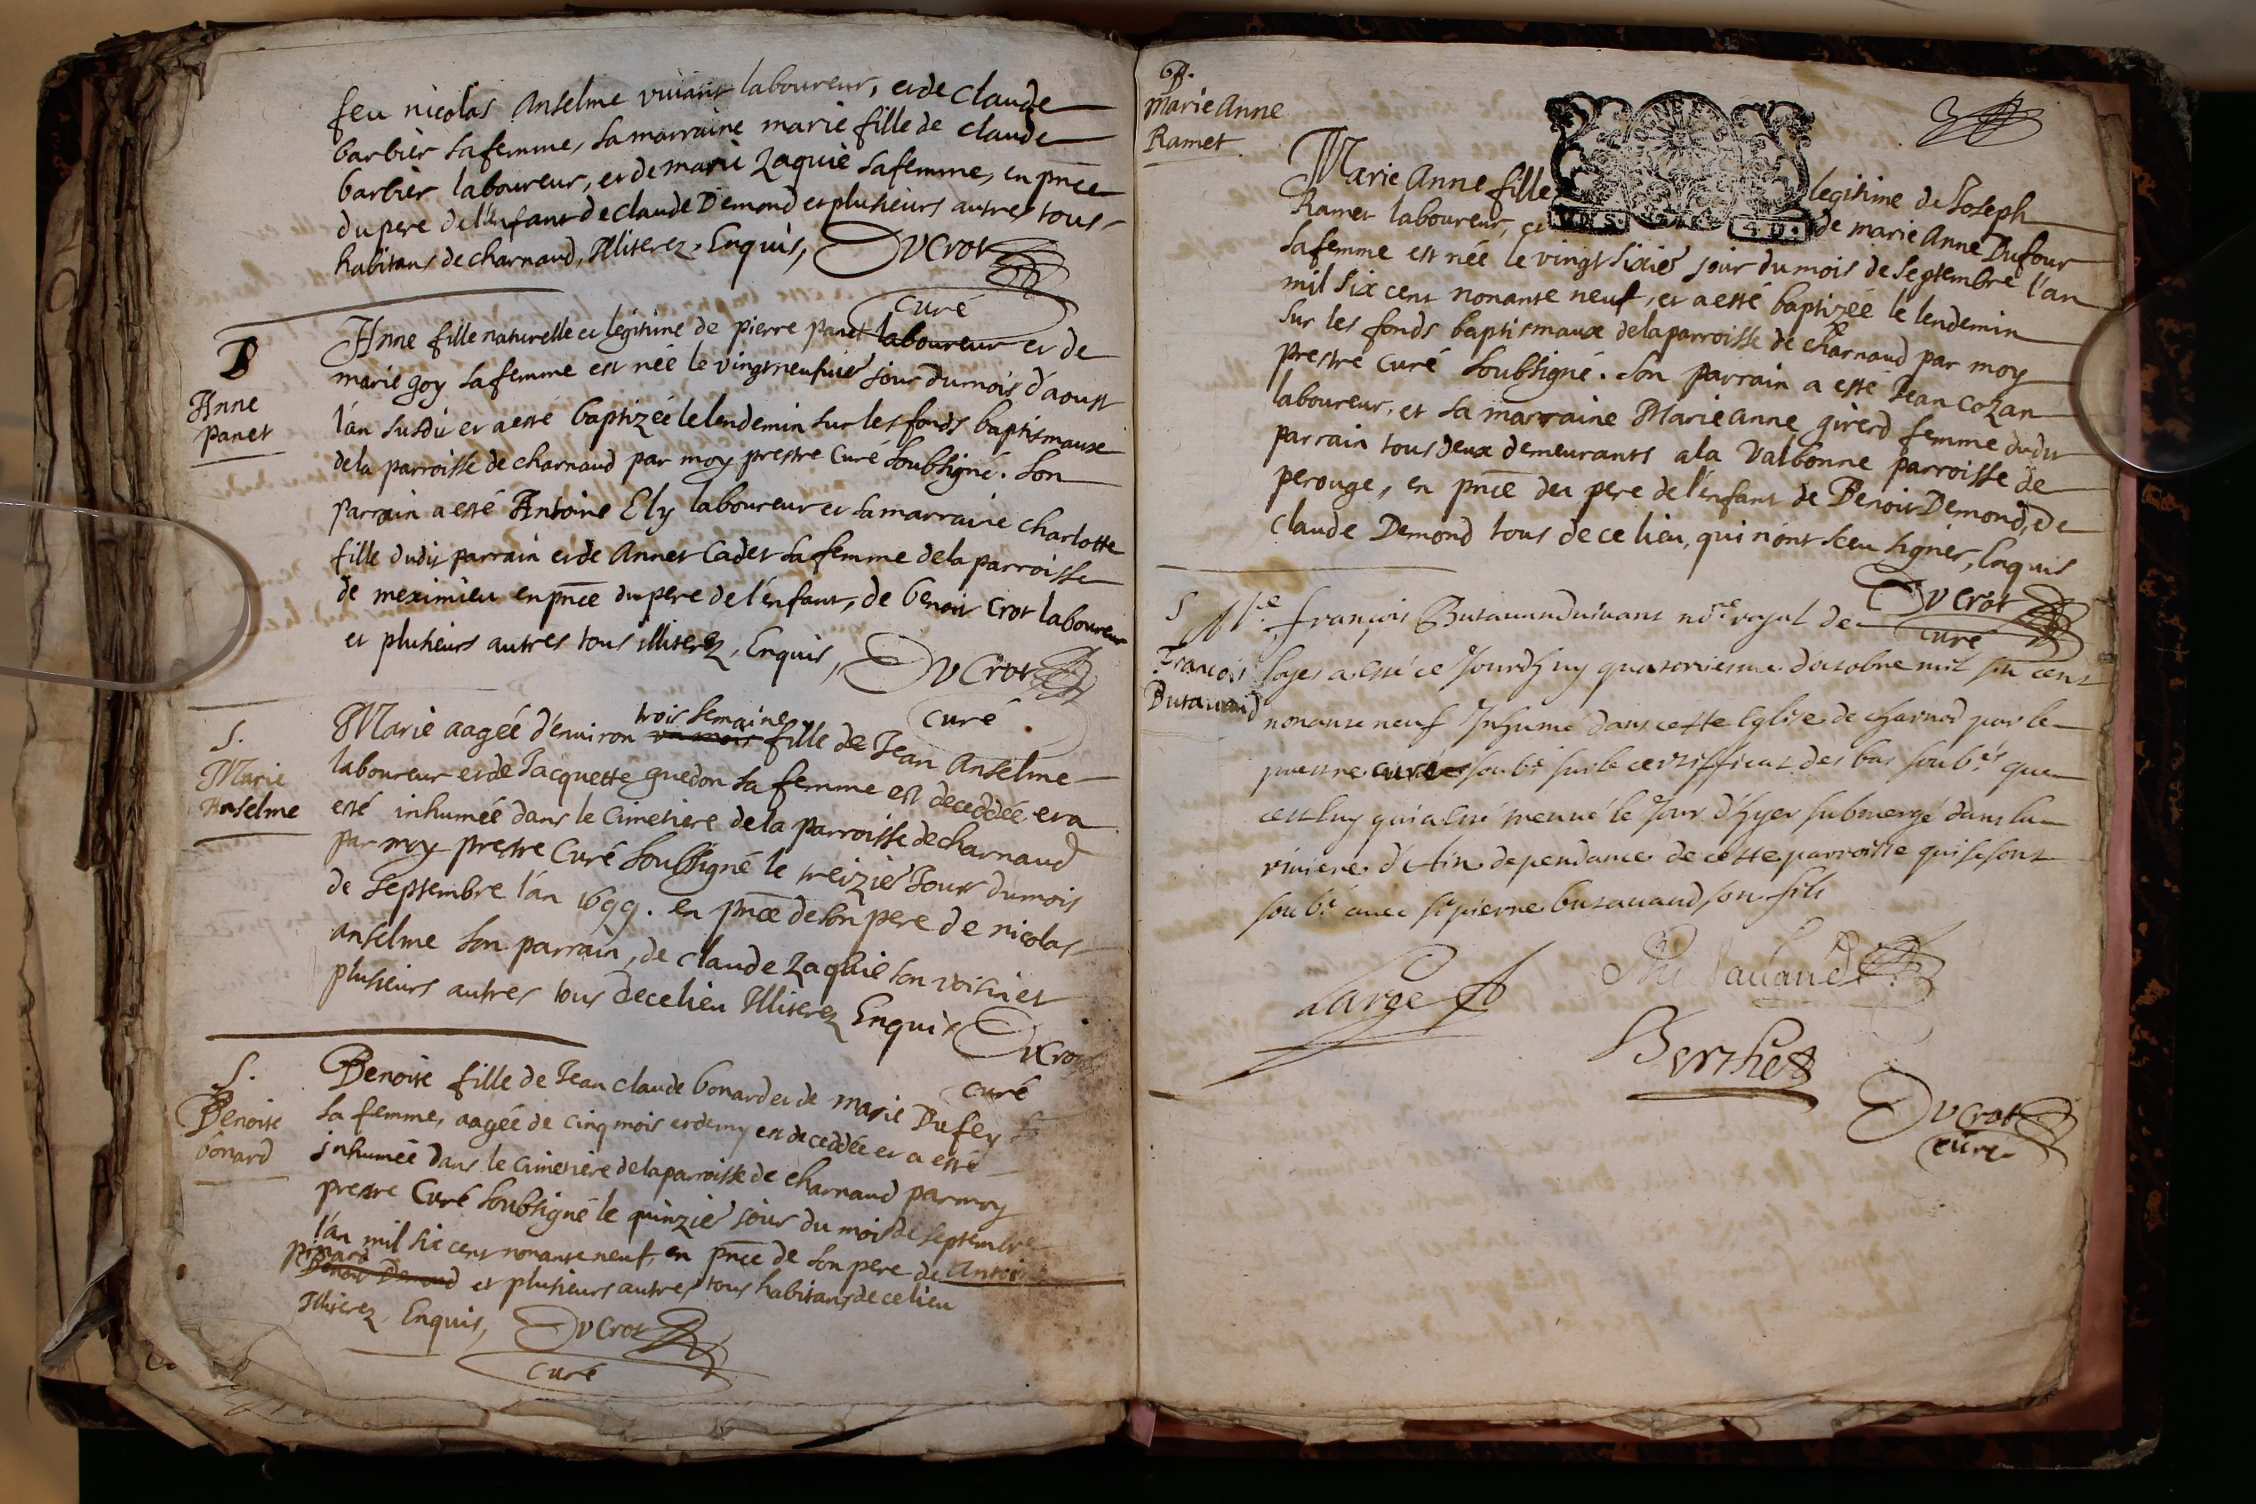 feu nicolas Anselme vivant laboureur, et de claude
barbier sa femme, sa marraine marie fille de claude
barbier laboureur, et de marie Zaquie sa femme, en pnce
du pere de l'enfant de claude Demond et plusieurs autres tous
habitans de charnaud, Illiterez. Enquis, Ducrot
curé
B
Anne
panet
Anne fille naturelle et legitime de pierre panet laboureur et de
marie goy sa femme est née le vingt neufvie jour du mois d'aoust
l'an susdit et a esté baptizée le lendemin sur les fonds baptismaux
de la parroisse de charnaud par moy prestre Curé soubsigné. son
parrain a esté Antoine Ely laboureur et sa marraine charlotte
fille dudit parrain et de Annet Cadet sa femme de la parroisse
de meximieu en pnce du pere de l'enfant, de benoit Crot laboureur
et plusieurs autres tous illiterez, Enquis, Ducrot
curé
S.
Marie
Anselme
trois semaines
Marie aagée d'environ un mois fille de Jean Anselme
laboureur et de Jacquette guedon sa femme est deceddée et a
esté inhumée dans le Cimetiere de la parroisse de charnaud
par moy prestre Curé soubsigné le treizie Jour du mois
de septembre l'an 1699. en pnce de son pere de nicolas
anselme son parrain, de claude Zaquie son voisin et
plusieurs autres tous de ce lieu Illiterez Enquis Ducrot
curé
S.
Benoite
bonard
Benoite fille de Jean claude bonard et de marie Dufey
sa femme, aagée de cinq mois et demy est deceddée et a esté
inhumée dans le cimetiere de la parroisse de charnaud par moy
prestre Curé soubsigné le quinzie jour du mois de septembre
l'an mil six cent nonante neuf, en pnce de son pere de Antoine
Benoit Demond et plusieurs autres tous habitans de ce lieu
Illiterez, Enquis, Ducrot
curé
B.
Marie Anne
Ramet
Marie Anne fille legitime de Joseph
Ramet laboureur, et de marie Anne Dufour
sa femme est née le vingt sixie jour du mois de septembre l'an
mil six cent nonante neuf, et a esté baptizée le lendemin
sur les fonds baptismaux de la parroisse de charnaud par moy
prestre curé soubsigné. son parrain a esté Jean Cozan
laboureur, et sa marraine Marie anne girerd femme dudit
parrain tous deux demeurants a la Valbonne parroisse de
perouge, en pnce du pere de l'enfant de Benoit Demond, de
claude Demond tous de ce lieu, qui n'ont sceu signer, Enquis
Ducrot
curé
S
François
Butavand
Mre. françois Butavand vivant nore royal de
loyes a esté ce Jourdhuy quatorziesme d'octobre mil six cent
nonante neuf Inhumé dans cette Eglise de charnod par le
prestre curé soubé sur le certifficat des bas soubés que
c'est luy qui a esté treuvé le Jour d'hyer submergé dans la
riviere d'Ain dependance de cette parroisse qui se sont
soubé avec sr pierre butavand son fils
Large
Butavand
Berthet
Ducrot
curé